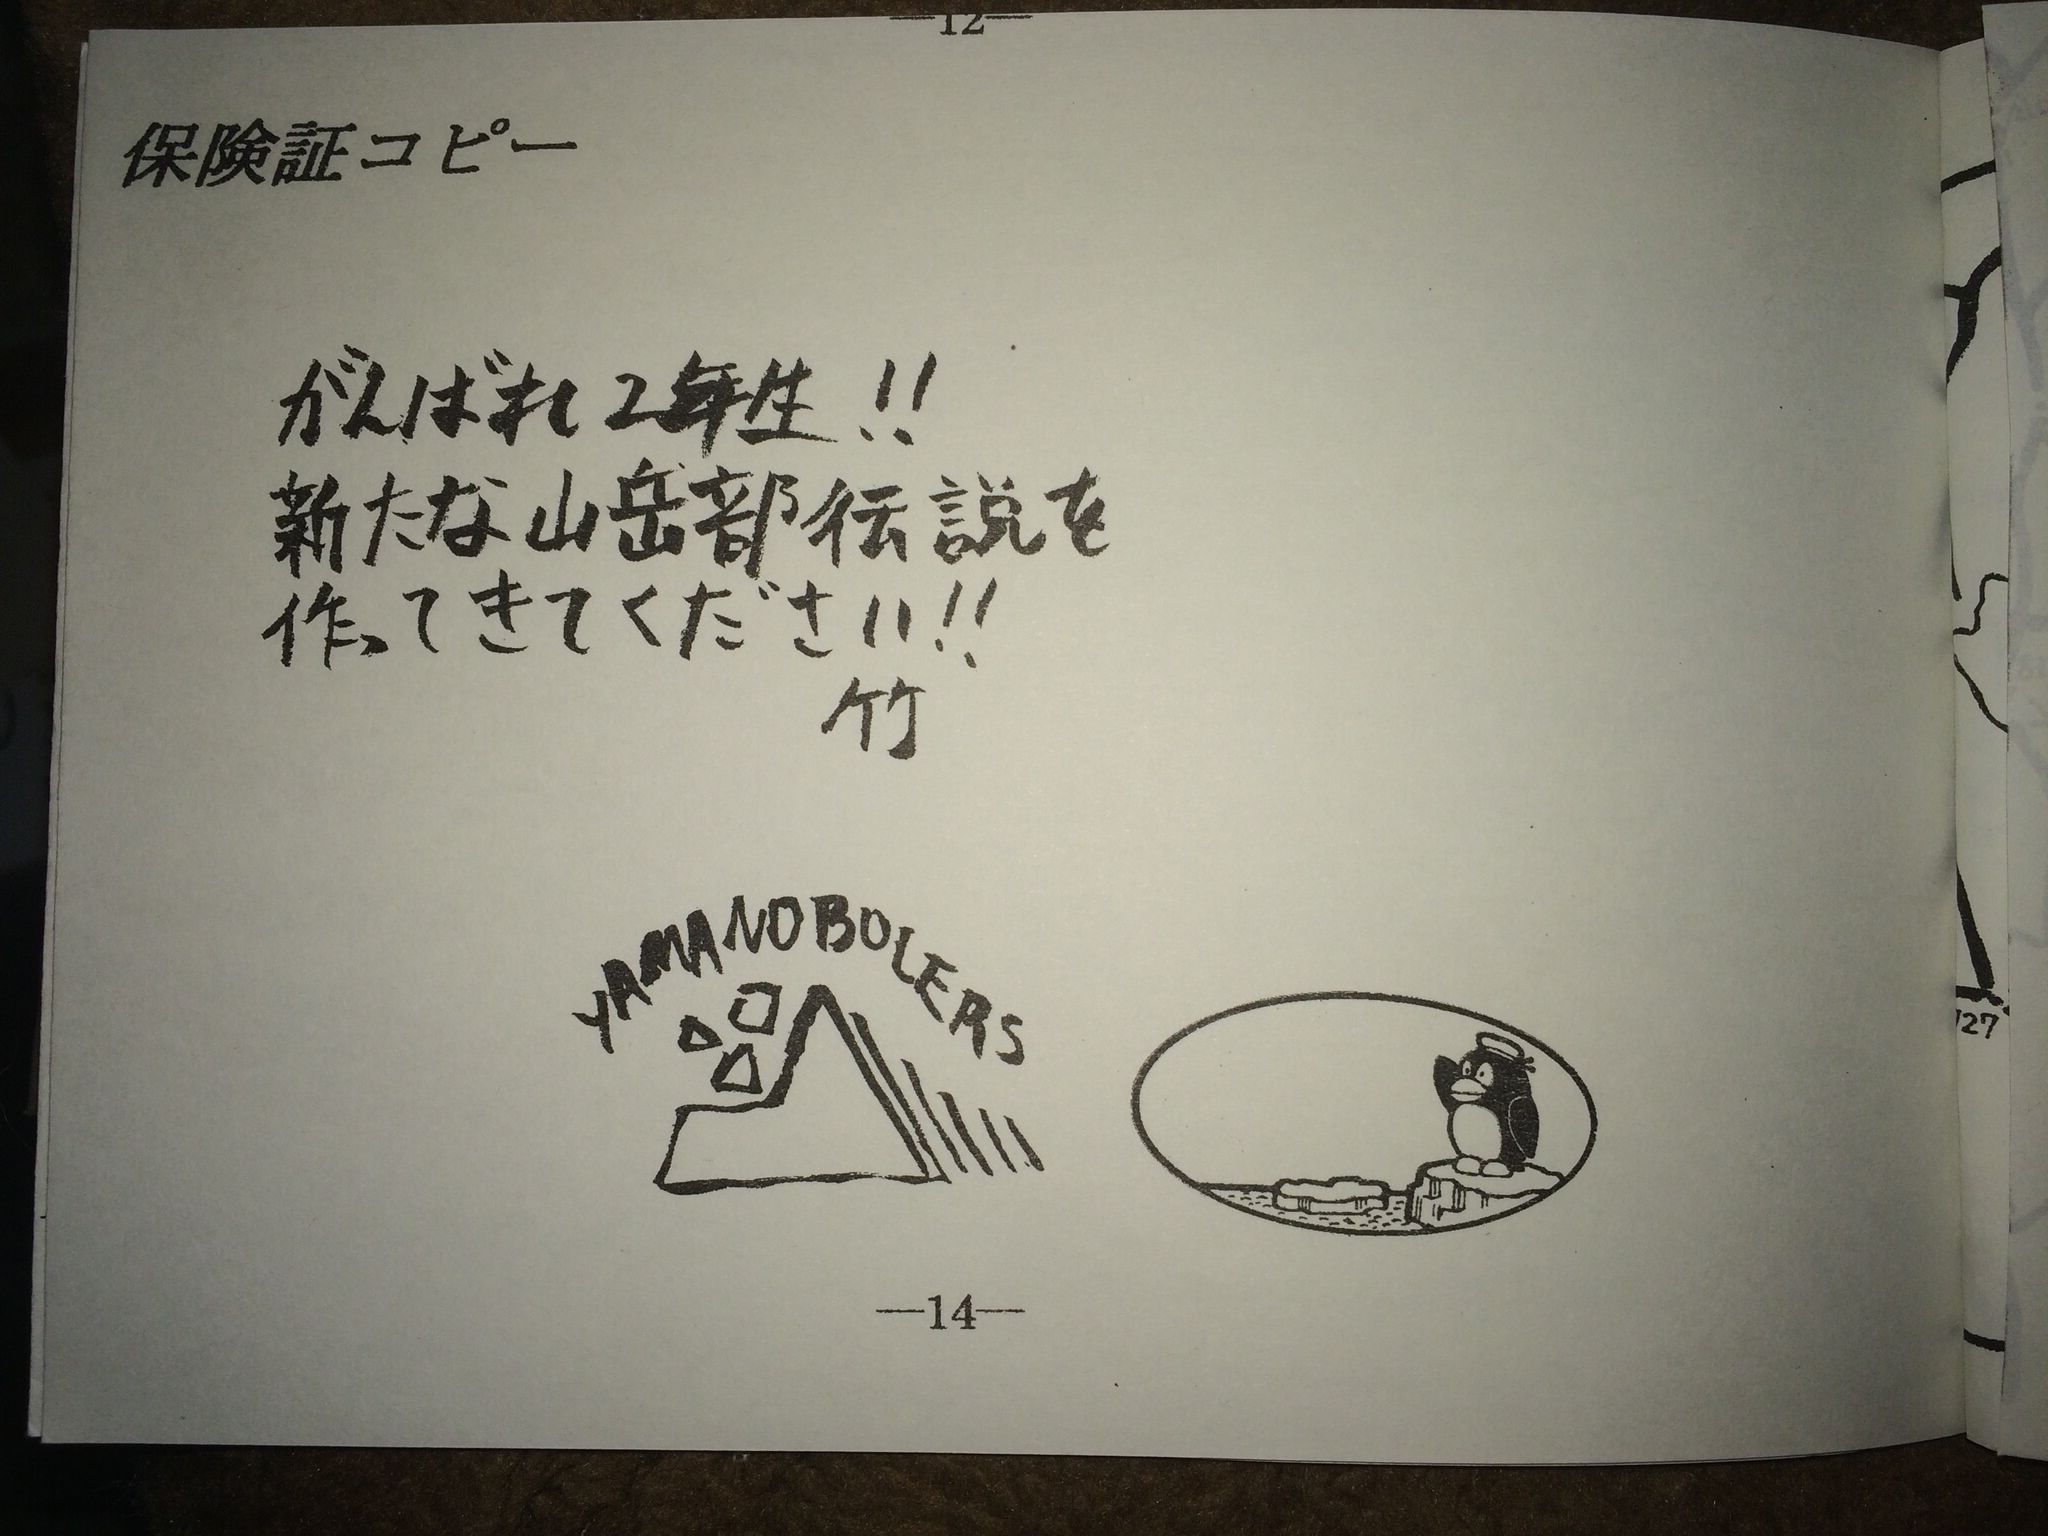 —12—
保険証コピー
がんばれ2年生!!
新たな山岳部伝説を
作ってきてください!!
竹
YAMANOBOLERS
127
—14—